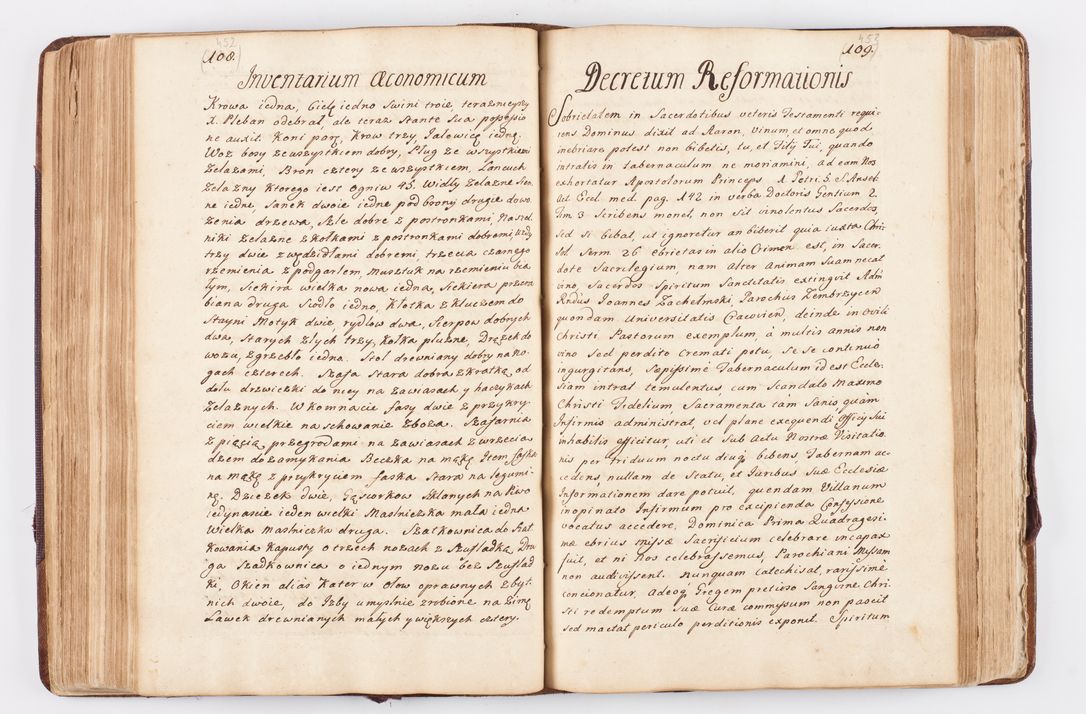 452
(108.)
Inventarium Œconomicum
Krowa iedna, Cielę iedno Swini troie, teraznieyszy
X. Pleban odebrał, ale teraz stante sua possessio
ne auxit. Koni parę, Krow trzy, Jałowicę iednę.
Woz bosy ze wszystkiem dobry, Pług ze wszystkiemi
Zelazami, Bron cztery ze wszystkiem, Łancuch
Zelazny ktorego iest Ogniw 45. Widły Zelazne Sien
ne iedne, Sanek dwoie iedne pod brony drugie do wo
zenia drzewa, Szle dobre z postronkami, Nasze
lniki Zelazne z kołkami z postronkami dobremi, Uzdy
trzy dwie z wędzidłami dobremi, trzecia czarnego
rzemienia z podgarłem, Musztuk na rzemieniu bia
łym, Siekira wielka nowa iedna, Siekiera przera
biana druga Siodło iedno, Kłotka z kluczem do
Stayni Motyk dwie, rydlow dwa, Sierpow dobrych
dwa, Starych złych trzy, kołka płużne, Drążek do
wozu, zgrzebło iedna. Stoł drewniany dobry na No
gach czterech. Szafa Stara dobra z kratką, od
dołu drzwiczki do niey na Zawiasach y haczykach
Zelaznych. W komnacie fasy dwie z przykry
ciem wielkie na schowanie Zboza. Szafarnia
z pięcią przegrodami na zawiasach z wrzecia
dzem do zamykania Beczka na mąkę Item faska
na mąkę z przykryciem faska Stara na legumi
nę. Dzieżek dwie, Gąsiorkow Szklanych na Piwo
iedynaście ieden wielki Maslniczka mała iedna
Wielka masłniczka druga. Szatkownica do Szat
kowania Kapusty o trzech nozach z Szufladką Dru
ga Szadkownica o iednym nozu bez Szuflad
ki, Okien alias Kater w Ołow oprawnych zbyt
nich dwoie, do Izby umyslnie zrobione na Zimę
Ławek drewnianych małych y większych cztery.
453
(109.)
Decretum Reformationis
Sobrietatem in Sacerdotibus veteris Testamenti requi
rens Dominus dixit ad Aaron, Vinum, et omne quod
inebriare potest non bibetis, tu, et Filij Tui, quando
intratis in tabernaculum ne moriamini, ad eam Nos
exhortatur Apostolorum Princeps 1 Petri. 5. S. Ansel.
Act Eccl. med. pag. 142 in verba Doctoris Gentium 2.
Tim 3 Scribens monet, non sit vinolentus Sacerdos,
sed si bibat, ut ignoretur an biberit quia iuxta Chri
sol. Serm. 26 Ebrietas in alio Crimen est, in Sacer
dote Sacrilegium, nam alter Animam suam necat
vino, Sacerdos Spiritum Sanctitatis extingvit Adm
Rndus Joannes Zachelmski, Parochus Zembrzycen
quondam Universitatis Cracovien, deinde in Ovili
Christi Pastorum exemplum, à multis annis non
vino Sed perdito Cremati potu, Se se continuò
ingurgitans, Sæpissimè Tabernaculum id est Eccle
siam intrat temulentus, cum Scandalo Maximo
Christi Fidelium, Sacramenta tàm Sanis, quàm
Infirmis administrat, vel plane exequendi Officij Sui
inhabilis efficitur, uti et Sub Actu Nostræ Visitatio
nis per triduum noctu diuq bibens, Tabernam ac
cedens, nullam de Statu, et Juribus Suæ Ecclesiæ
Informationem dare potuit, quendam Villanum
inopinato Infirmum pro excipienda Confessione
vocatus accedere, Dominica Prima Quadragesi
mæ ebrius Missæ Sacrificium celebrare incapax
fuit, et ni Nos celebrassemus, Parochiani Missam
non audivissent. Nunquam Catechisat, rarissimè
concionatur, adeoq Gregem pretioso Sangvine Chri
sti redemptum Suæ Curæ commissum non pascit
sed mactat periculo perditionis exponit. Spiritum